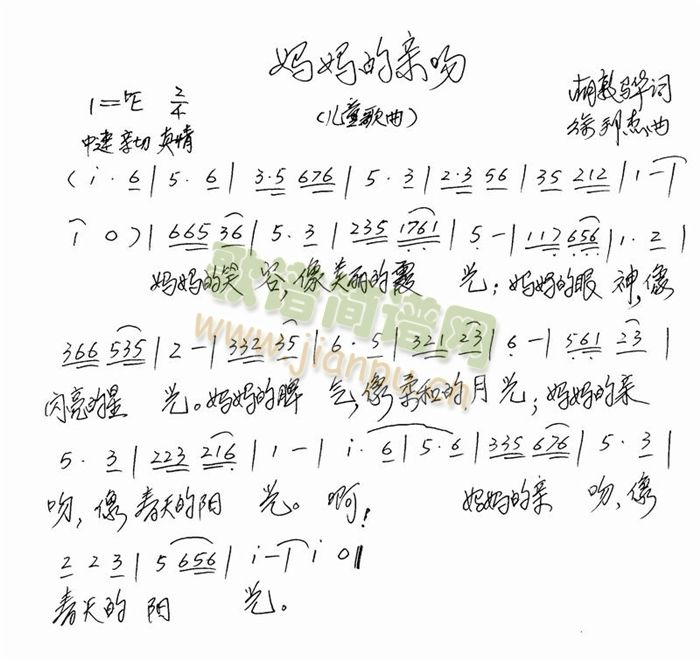 妈妈的亲吻
1=♭E 2/4
(儿童歌曲)
词
中速 亲切 真情
曲
(i·6|5·6|3·5 676|5·3|2·3 56|35 212|1-|
1 0)|665 36|5·3|235 1761|5-|117 656|1·2|
妈妈的笑 容,像美丽的霞 光;妈妈的眼 神,像
366 535|2-|332 35|6·5|321 23|6-|561 23|
闪亮的星 光。妈妈的脾 气,像柔和的月光;妈妈的亲
5·3|223 216|1-|i·6|5·6|335 676|5·3|
吻,像春天的阳 光。啊! 妈妈的亲 吻,像
2 2 3|5 656|i-|i 0‖
春天的 阳 光。
歌谱简谱网
www.jianpu.cn